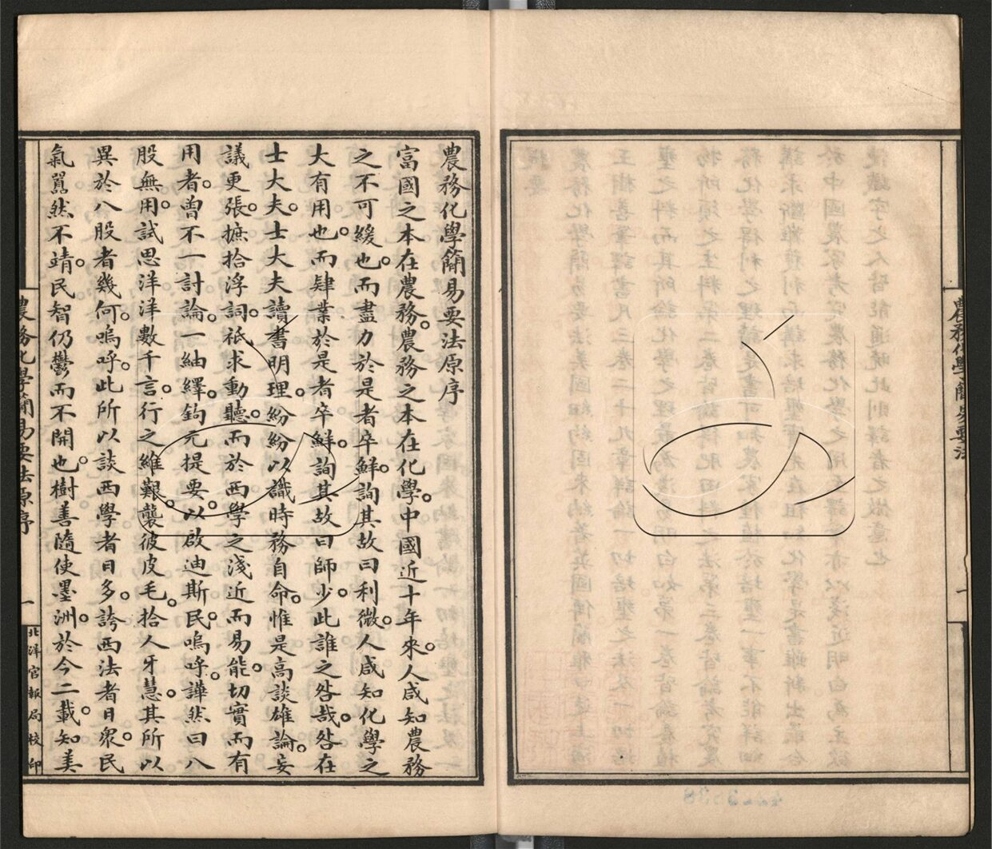 農務化學簡易要法
一
農務化學簡易要法原序
富國之本在農務。農務之本在化學。中國近十年來。人咸知農務
之不可緩也。而盡力於是者卒鮮。詢其故曰利微。人咸知化學之
大有用也。而肄業於是者卒鮮。詢其故曰師少。此誰之咎哉。咎在
士大夫。士大夫讀書明理。紛紛以識時務自命。惟是高談雄論。妄
議更張。摭拾浮詞。祇求動聽。而於西學之淺近而易能。切實而有
用者。曾不一討論。一紬繹。鈎元提要。以啟迪斯民。嗚呼。譁然曰八
股無用。試思洋洋數千言。行之維艱。襲彼皮毛。拾人牙慧。其所以
異於八股者幾何。嗚呼。此所以談西學者日多。誇西法者日衆。民
氣囂然不靖。民智仍鬱而不開也。樹善隨使墨洲。於今二載。知美
農務化學簡易要法原序
一
北洋官報局校印